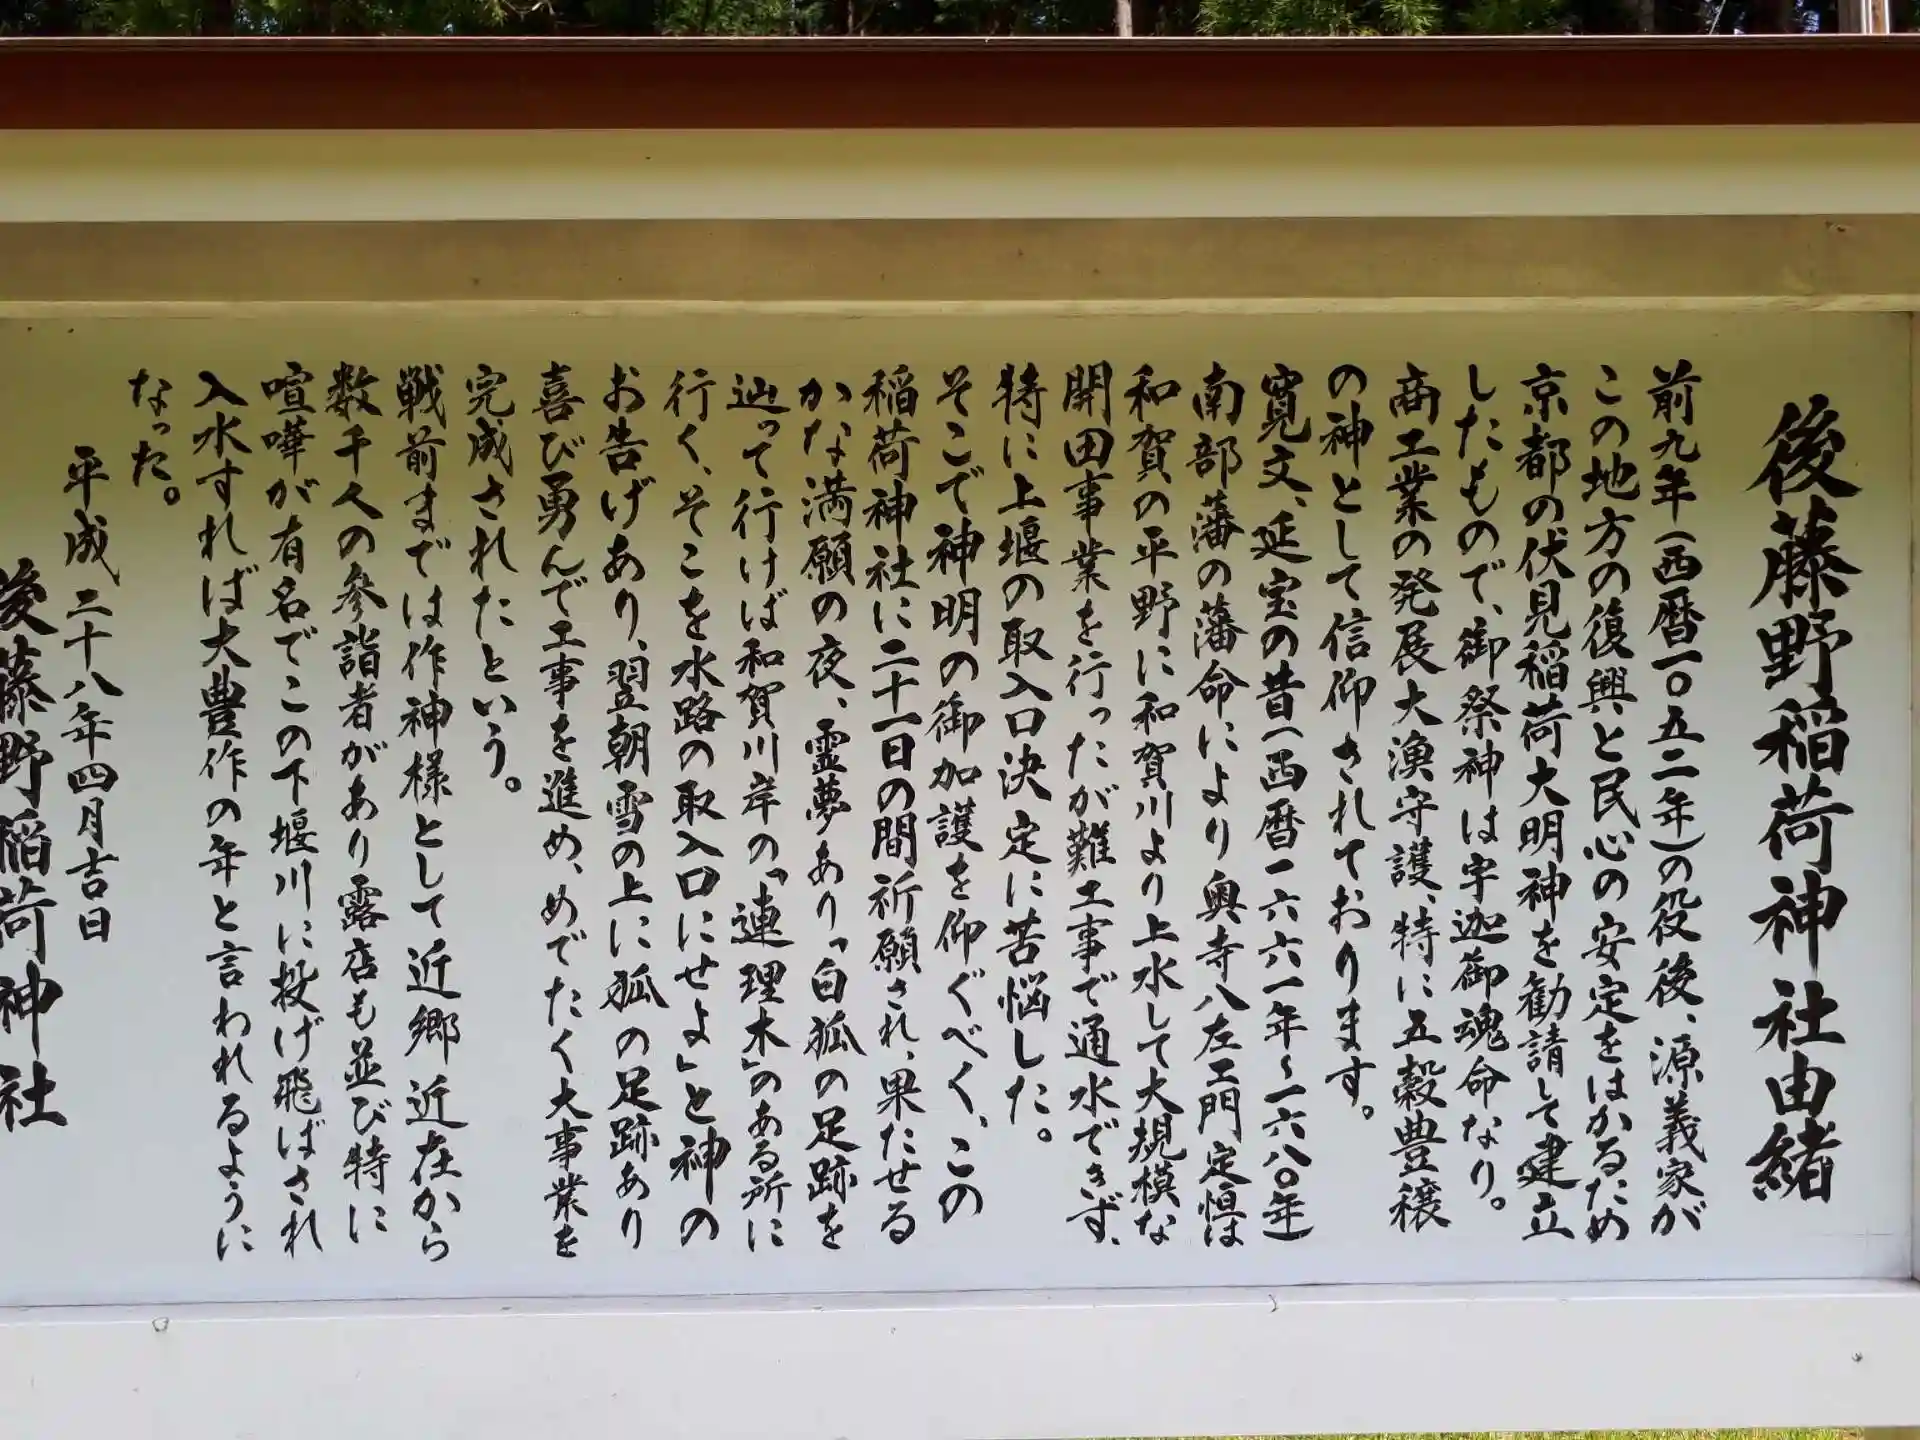 後藤野稲荷神社由緒
前九年(西暦一〇五二年)の役後、源義家が
この地方の復興と民心の安定をはかるため
京都の伏見稲荷大明神を勧請して建立
したもので、御祭神は宇迦御魂命なり。
商工業の発展大漁守護、特に五穀豊穣
の神として信仰されております。
寛文、延宝の昔(西暦一六六一年~一六八〇年
南部藩の藩命により奥寺八左エ門定恒は
和賀の平野に和賀川より上水して大規模な
開田事業を行ったが難工事で通水できず、
特に上堰の取入口決定に苦悩した。
そこで神明の御加護を仰ぐべく、この
稲荷神社に二十一日の間祈願され、果たせる
かな満願の夜、霊夢あり「白狐の足跡を
辿って行けば和賀川岸の「連理木」のある所に
行く、そこを水路の取入口にせよ」と神の
お告げあり、翌朝雪の上に狐の足跡あり
喜び勇んで工事を進め、めでたく大事業を
完成されたという。
戦前までは作神様として近郷近在から
数千人の参詣者があり露店も並び特に
喧嘩が有名でこの下堰川に投げ飛ばされ
入水すれば大豊作の年と言われるように
なった。
平成二十八年四月吉日
後藤野稲荷神社